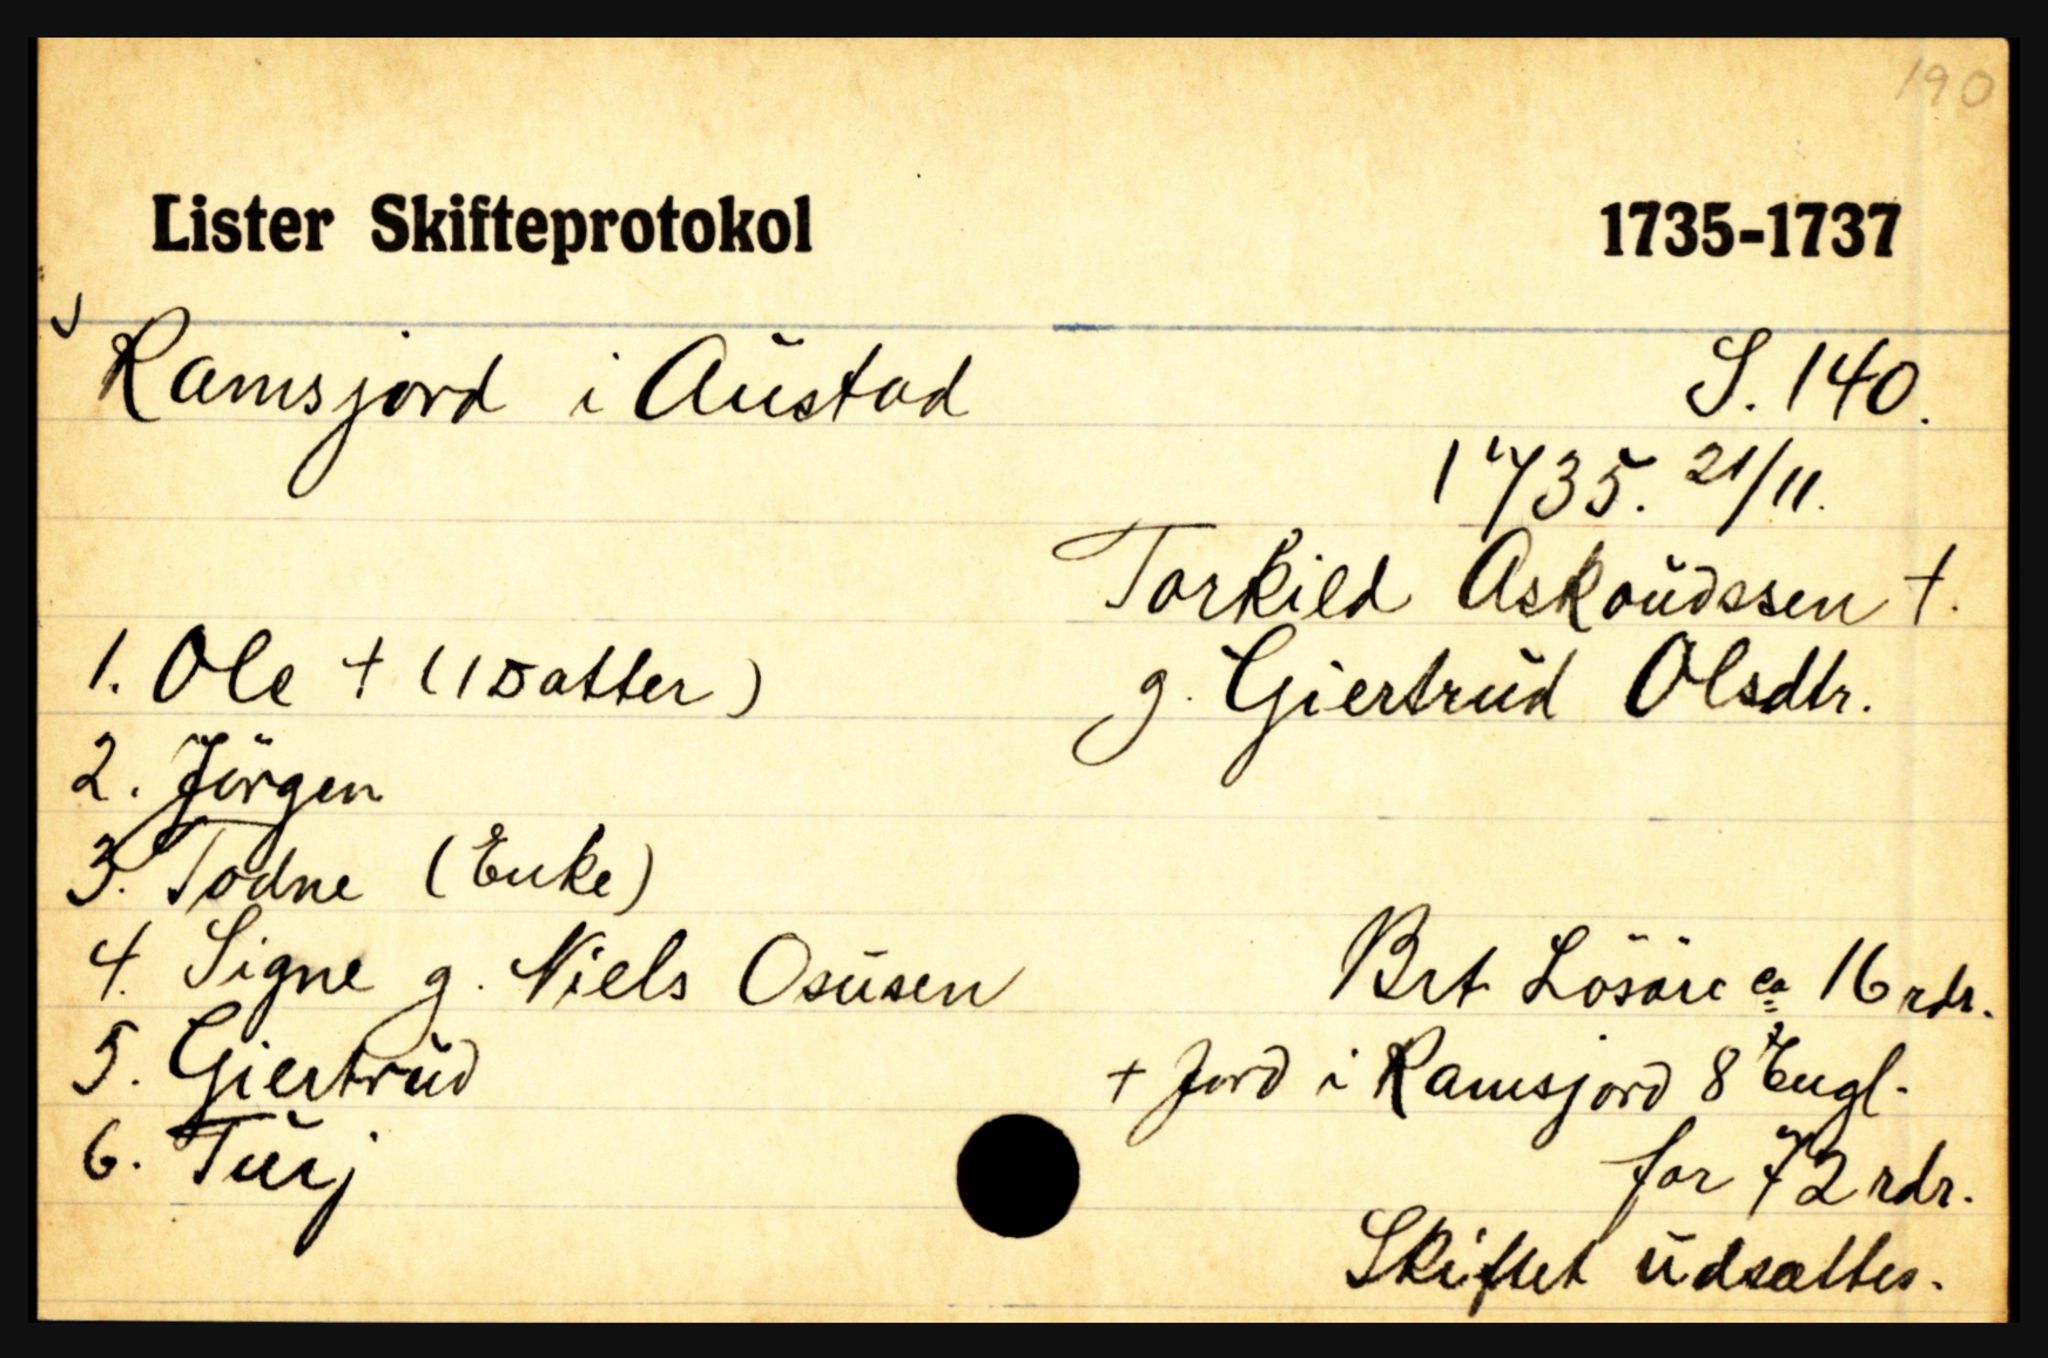 190
Lister Skifteprotokol 1735-1737
Ramsjord i Austad S. 140.
1735. 21/11.
Torkild Askoudssen †.
1. Ole † (1 Datter) g. Giertrud Olsdtr.
2. Jörgen
3. Todne (Enke)
4. Signe g. Niels Osüsen Brt Lösöre ca 16 rdr.
5. Giertrud + Jord i Ramsjord 8 Engl.
6. Turj for 72 rdr.
Skiftet udsættes.